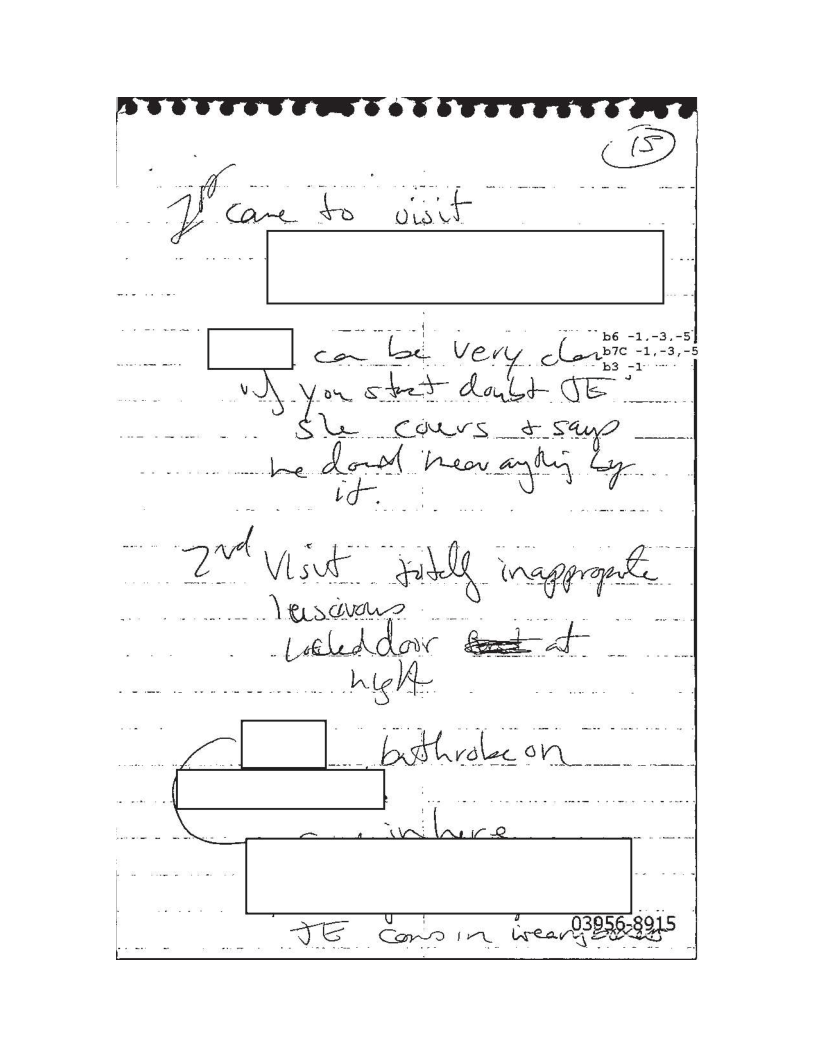 15
came to visit
b6 -1,-3,-5
b7C -1,-3,-5
b3 -1
can be very
if you start doubt JE
she covers & says
he doesn't mean anything by
it.
2nd Visit totally inappropriate
lascivious
Locked door at
night
bathrobe on
in here
03956-8915
JE coms in wearing